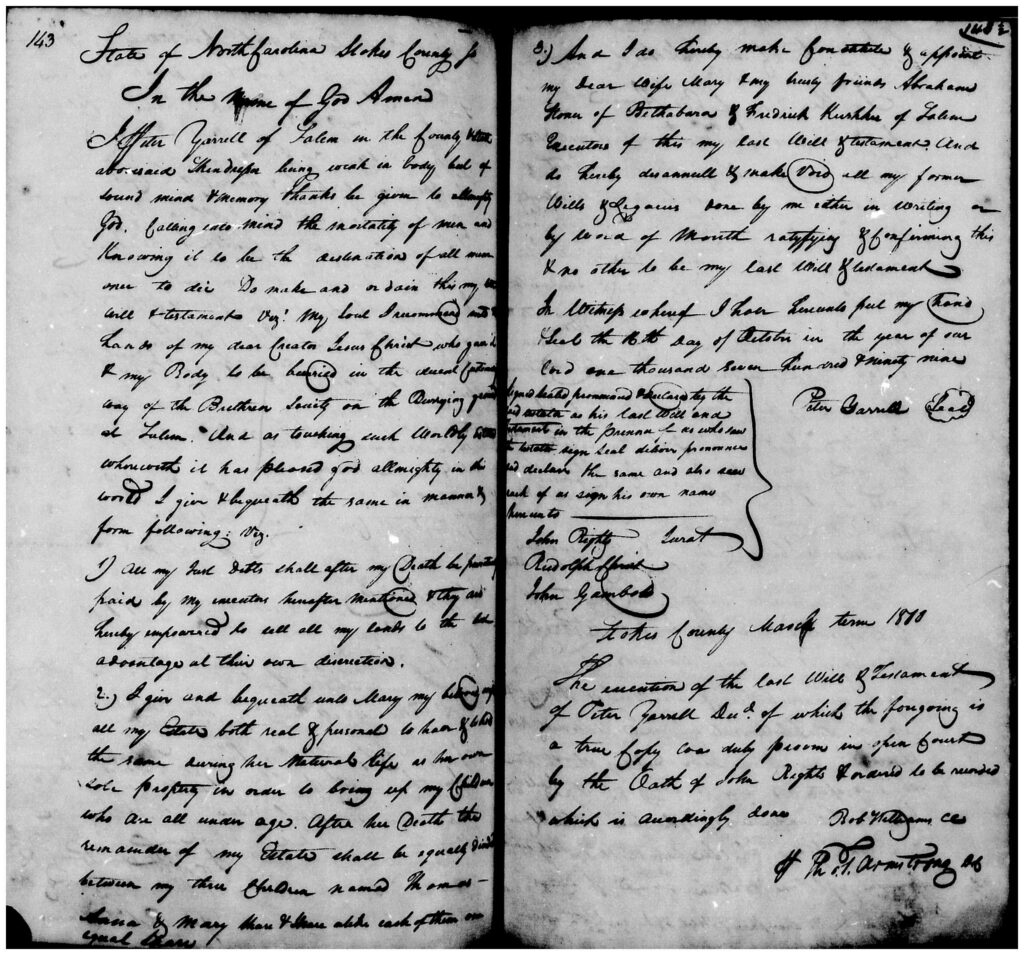 143
State of North Carolina Stokes County ss
In the Name of God Amen
I Peter Yarrell of Salem in the County & State
aforesaid Skindresser being weak in body but of
sound mind & memory thanks be given to allmighty
God. Calling into mind the mortality of men and
Knowing it to be the destination of all men
once to die Do make and ordain this my
will & testament Viz! My Soul I recommend into
hands of my dear Creator Jesus Christ who gave it
& my Body to be burried in the decent
way of the Brethren Society on the Burrying ground
at Salem. And as touching such Worldly
wherewith it has pleased god allmighty in this
world I give & bequeath the same in manner &
form following: Viz.
1) All my Just Debts shall after my Death be
paid by my executors hereafter mentioned & they are
hereby empowered to sell all my lands to the
advantage at their own discretion.
2.) I give and bequeath unto Mary my beloved wife
all my Estate both real & personal to have & to hold
the same during her Natural life as her own
sole property in order to bring up my Children
who are all under age. After her Death the
remainder of my Estate shall be equally divided
between my three Children named Thomas
Anna & Mary share & share alike each of them an
equal share
3.) And I do hereby make Constitute & appoint
my dear Wife Mary & my trusty friends Abraham
Stoner of Bethabara & Fredrick of Salem
Executors of this my last Will & testament And
do hereby disannull & make Void all my former
Wills & Legacies done by me either in Writing or
by Word of Mouth ratifying & Confirming this
& no other to be my last Will & testament
In Witness whereof I have hereunto put my hand
& Seal the 16th Day of October in the year of our
lord one thousand seven hundred & ninety nine
Peter Yarrell Seal
Signed sealed pronounced & declared by the
said testator as his last Will and
testament in the presence of us who saw
the testator sign seal deliver pronounce
and declare the same and also saw
each of us sign his own name
hereunto
John Rights Jurat
Rudolph Christ
John Gambold
Stokes County March term 1810
The execution of the last Will & Testament
of Peter Yarrell Decd. of which the foregoing is
a true Copy was duly proven in open Court
by the Oath of John Rights & ordered to be recorded
which is accordingly done Rob Williams CC
Tho. T. Armstrong DC